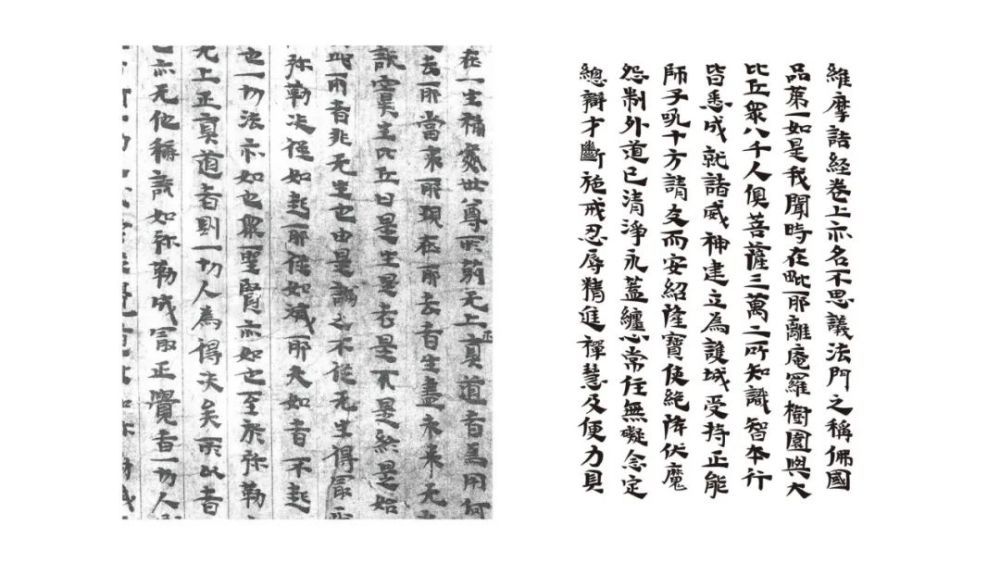 維摩詰経卷上亦名不思議法門之稱佛國
品第一如是我聞時在毗耶離庵羅樹園與大
比丘眾八千人俱菩薩三萬二所知識智本行
皆悉成就諸威神建立為護城受持正能
師子吼十方請友而安紹隆寶使絶降伏魔
怨制外道已清淨永蓋纏心常住無礙念定
總辯才斷施戒忍辱精進禪慧及便力具
在一生補處世尊所莂无上正真道者為用何
去耶當来耶現在耶去者生盡未来无
説實生比丘曰是生是老是死是終是始
此兩者非无生也由是論之不從无生得最正
弥勒决從如起耶從如滅耶夫如者不起
也一切法亦如也眾聖賢亦如也至於弥勒
无上正真道者則一切人為得决矣所以者
也亦无他稱説如弥勒成最正覺者一切人